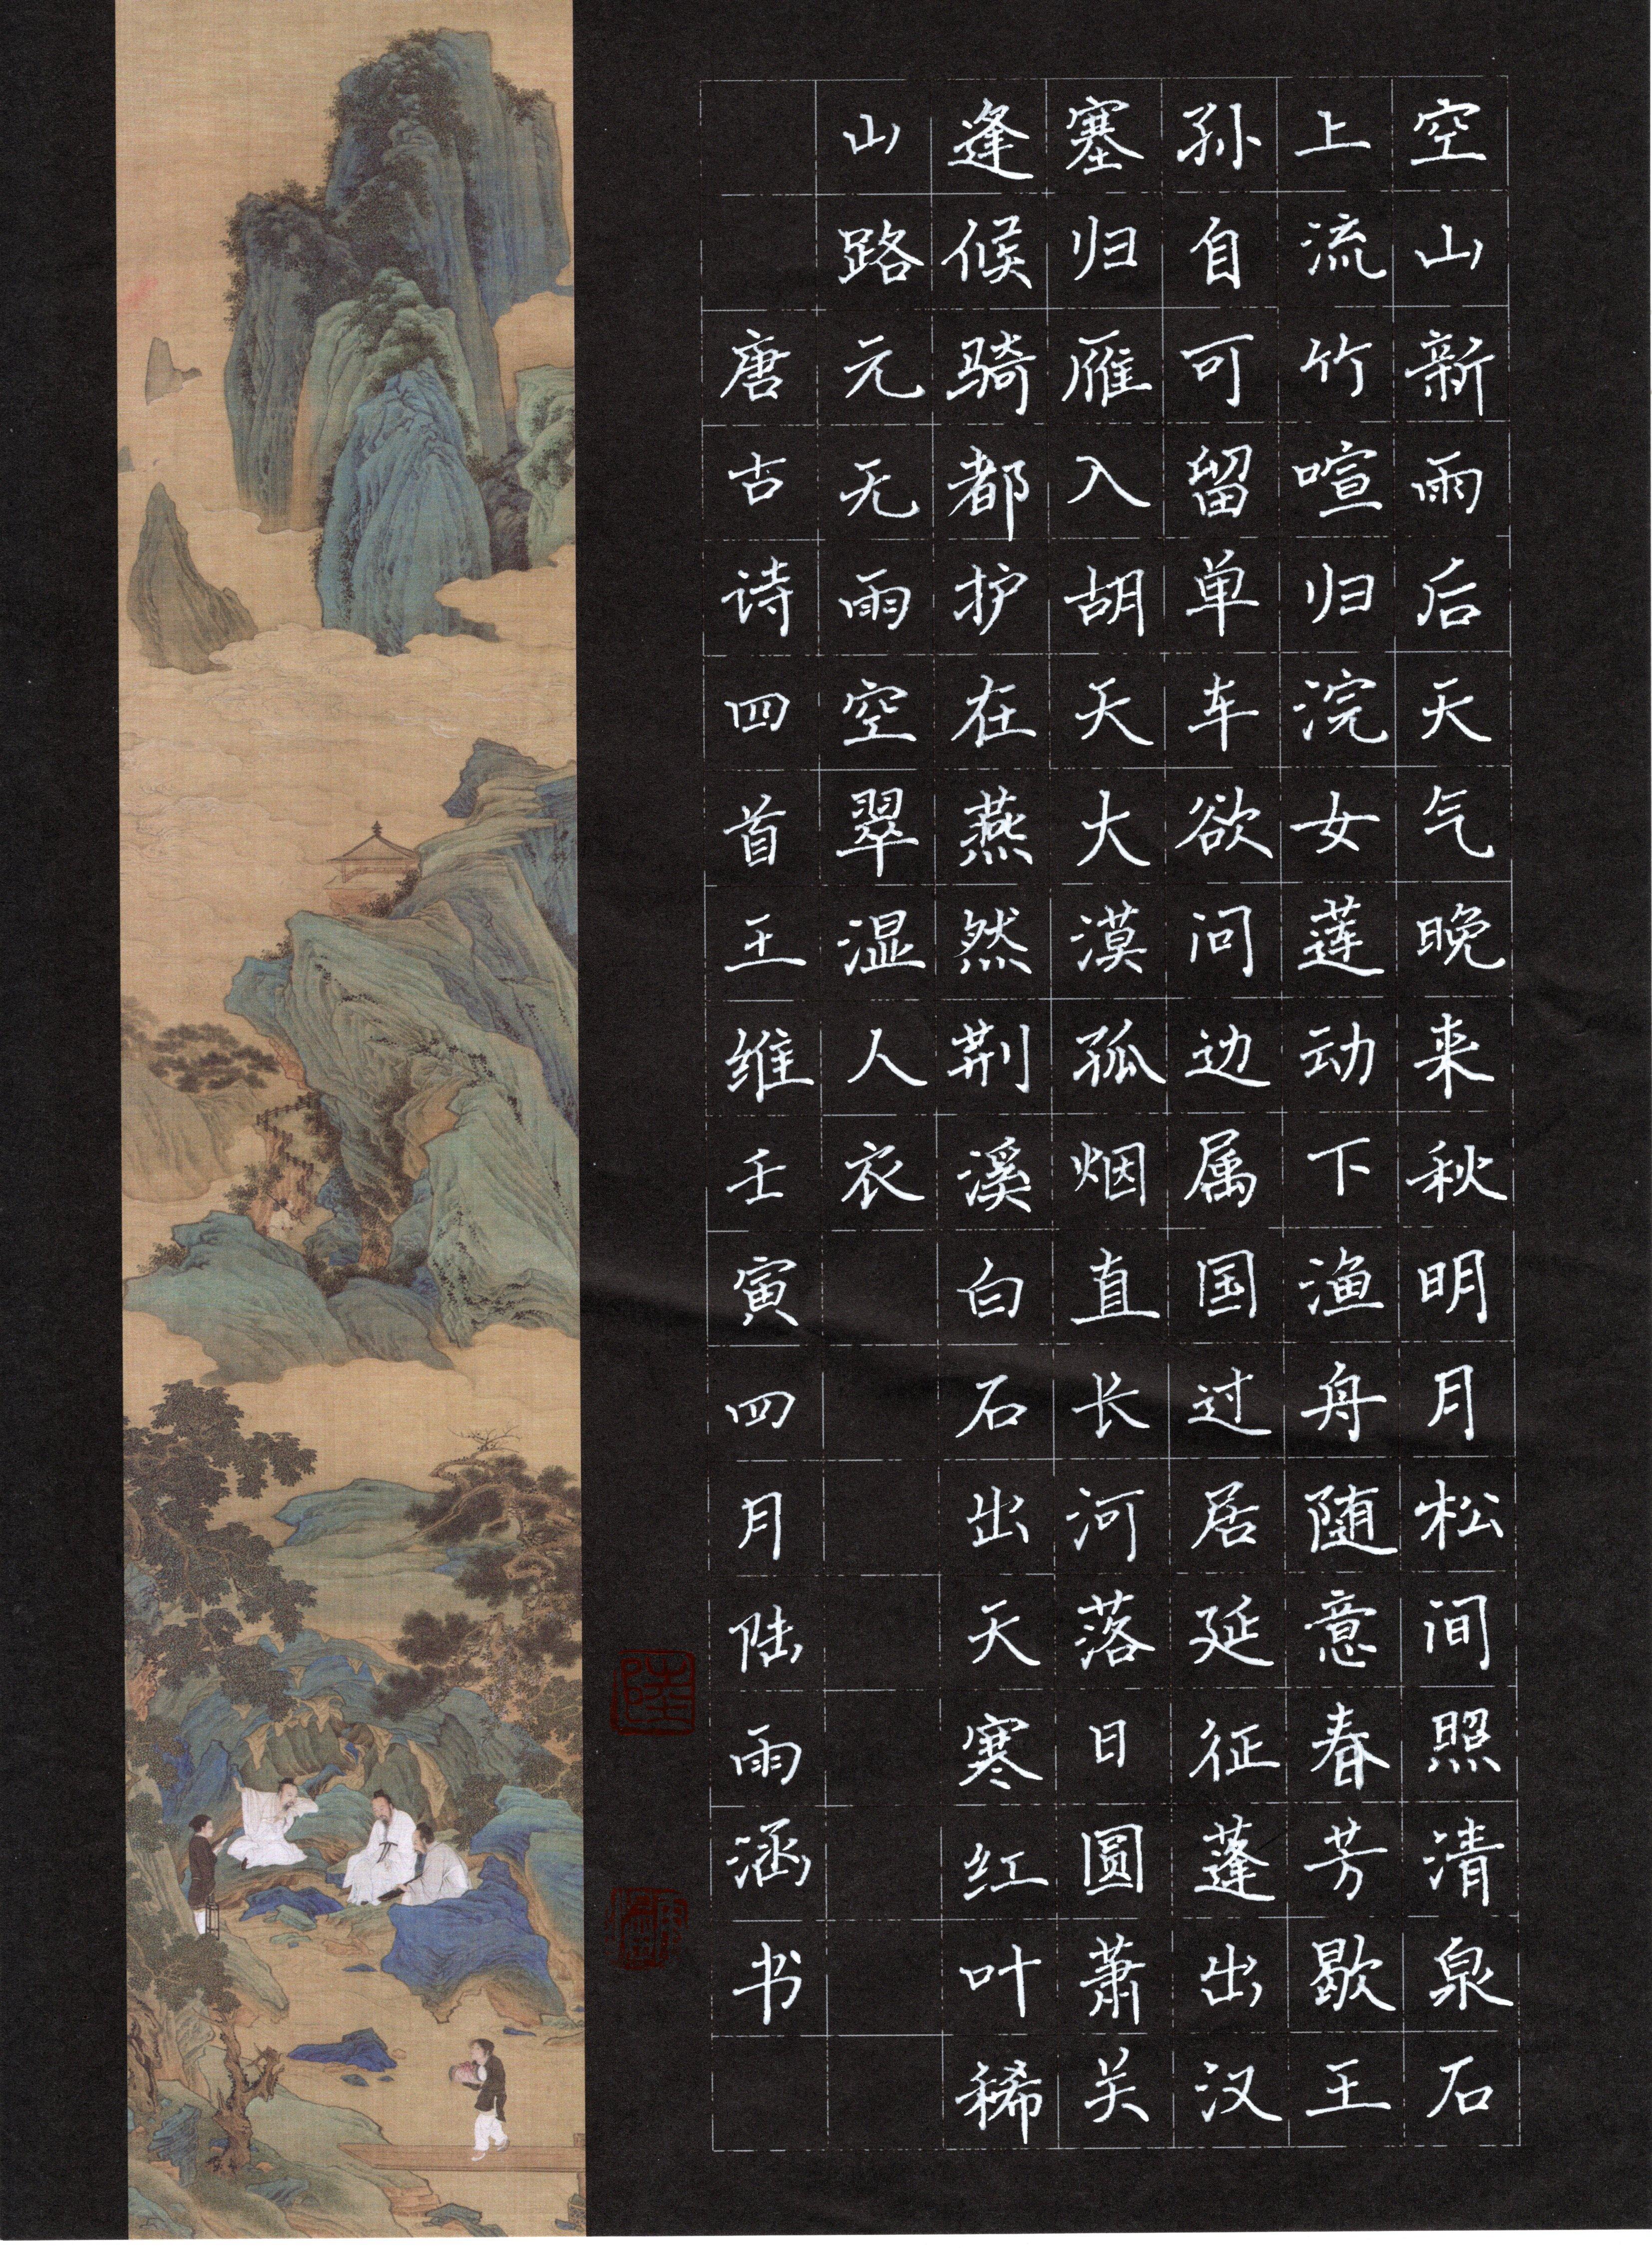 空山新雨后天气晚来秋明月松间照清泉石
上流竹喧归浣女莲动下渔舟随意春芳歇王
孙自可留单车欲问边属国过居延征蓬出汉
塞归雁入胡天大漠孤烟直长河落日圆萧关
逢候骑都护在燕然荆溪白石出天寒红叶稀
山路元无雨空翠湿人衣
唐古诗四首王维壬寅四月陆雨涵书
陸